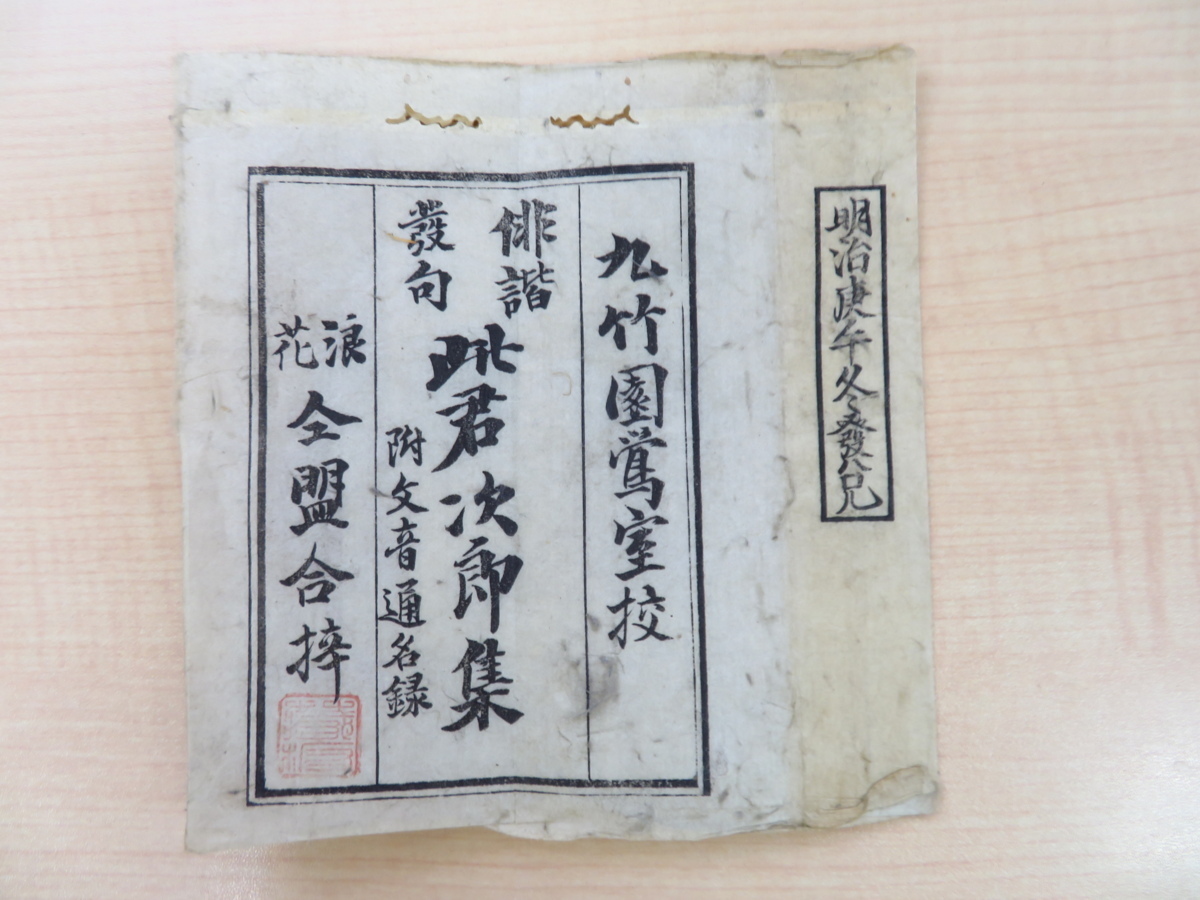 明治庚午冬發兌
九竹園鶯室挍
俳諧
發句
此君次郎集
附文音通名録
浪花
仝盟合梓